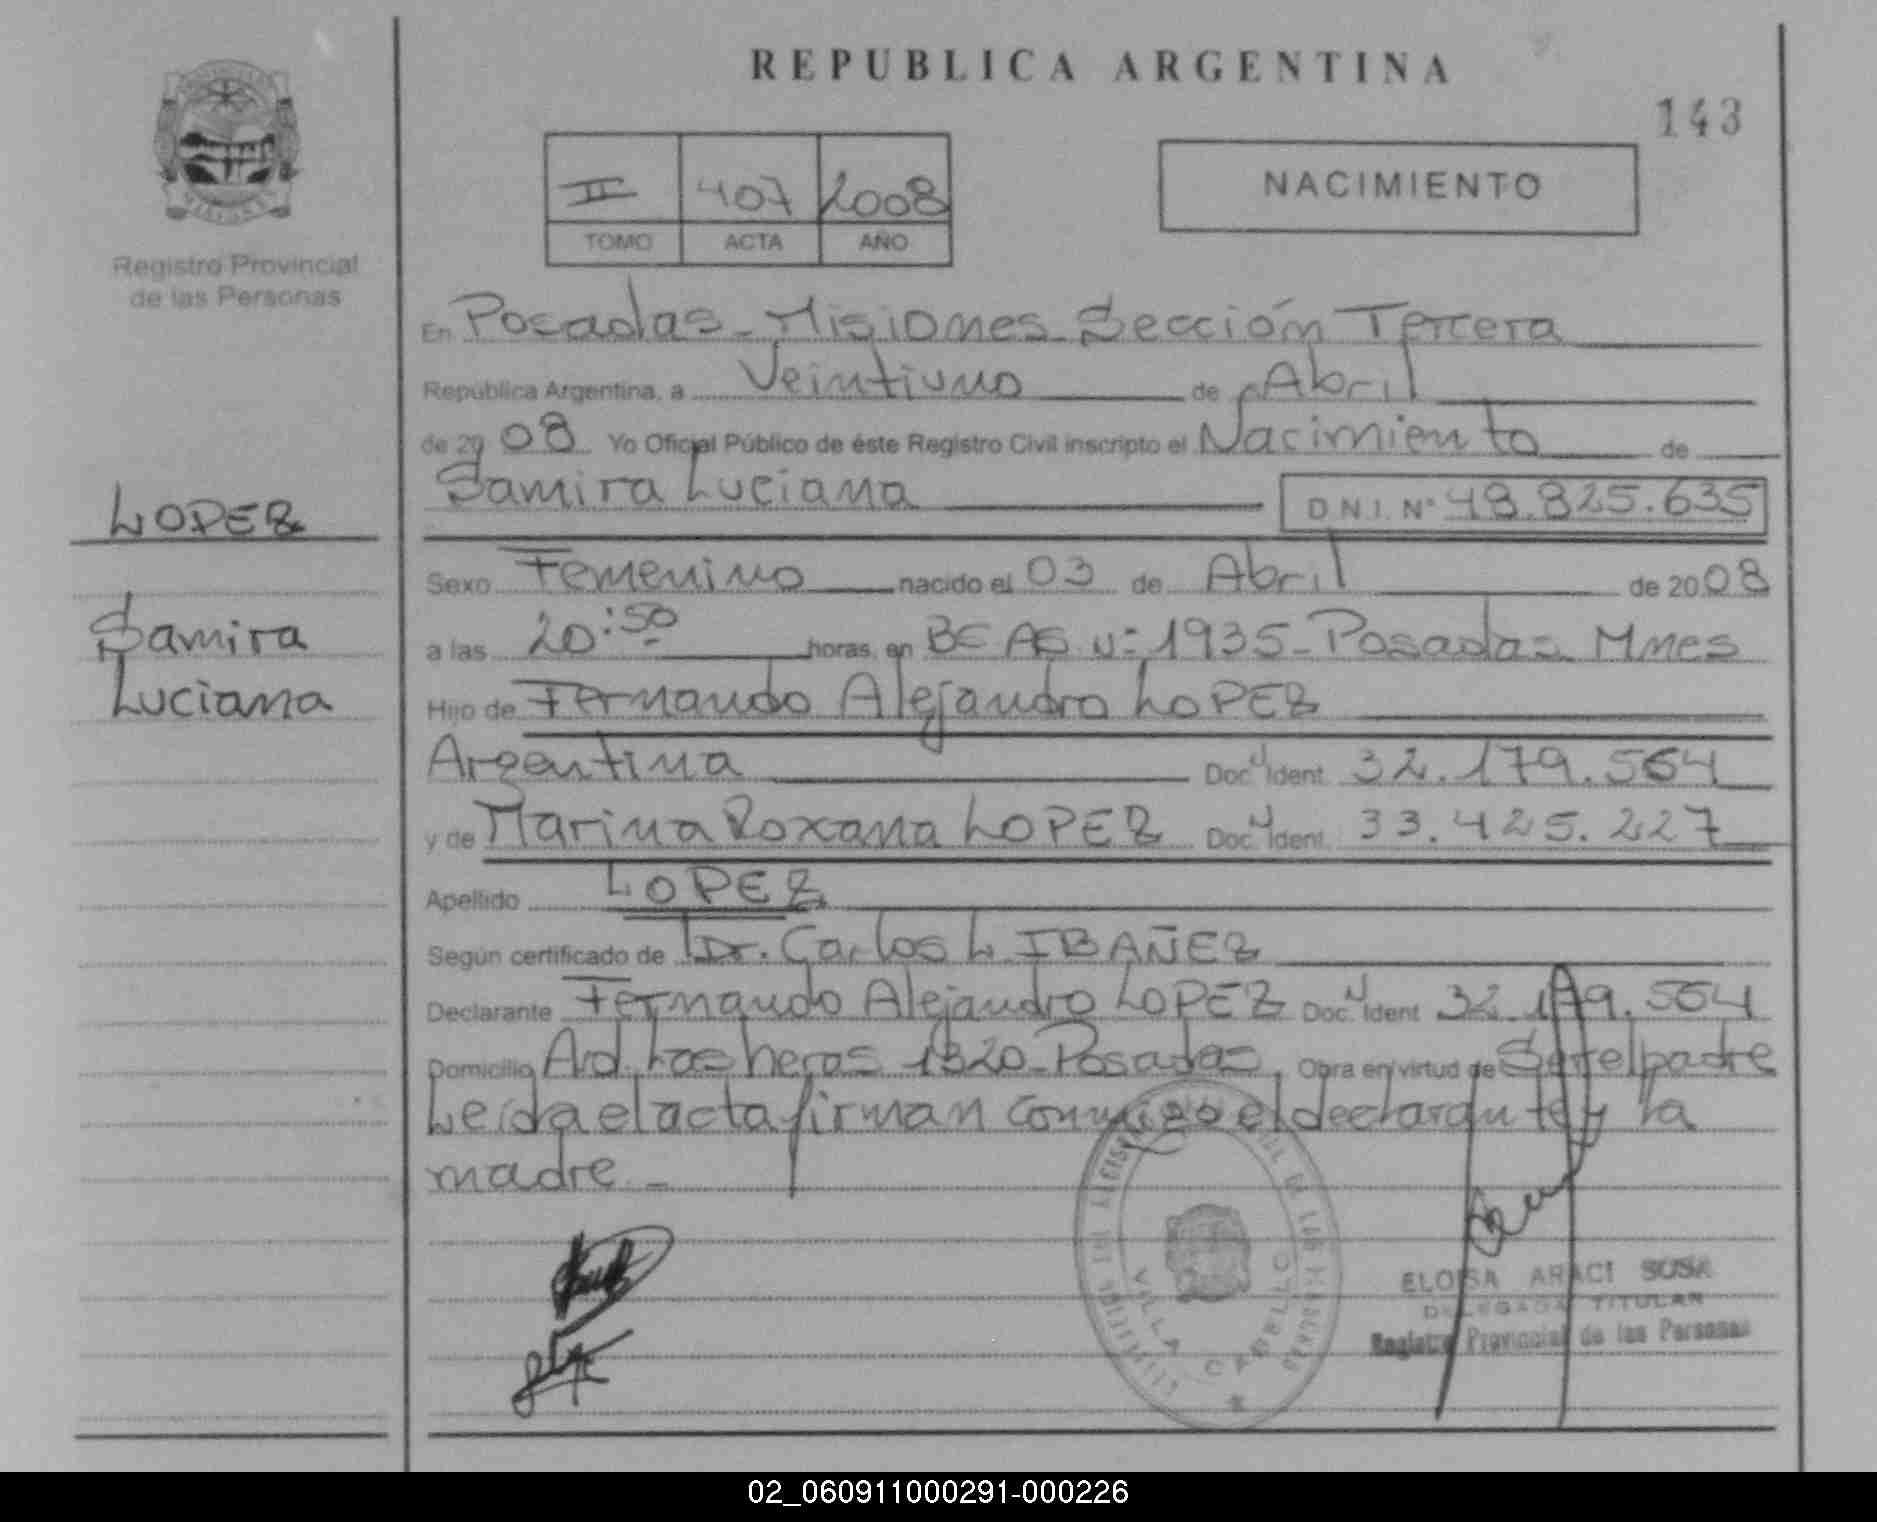 REPUBLICA ARGENTINA
143
II 407 2008
TOMO ACTA AÑO
NACIMIENTO
MISIONES
Registro Provincial
de las Personas
LOPEZ
Samira
Luciana
En Posadas - Misiones - Sección Tercera
República Argentina, a Veintiuno de Abril
de 20 08 Yo Oficial Público de éste Registro Civil inscripto el Nacimiento de
Samira Luciana D.N.I. Nº 48.825.635
Sexo Femenino nacido el 03 de Abril de 20 08
a las 20:50 horas, en BEAS Nº 1935 - Posadas - Mnes
Hijo de Fernando Alejandro LOPEZ
Argentina Doc. Ident. 32.179.564
y de Marina Roxana LOPEZ Doc. Ident. 33.425.227
Apellido LOPEZ
Según certificado de Dr. Carlos L. IBAÑEZ
Declarante Fernando Alejandro LOPEZ Doc. Ident 32.179.564
Domicilio Avd. Las heras 1320 - Posadas Obra en virtud de Ser el padre
Leida el acta firman conmigo el declarante y la
madre -
VILLA CABELLO
ELOISA ARACI SOSA
DELEGADA TITULAR
Registro Provincial de las Personas
02_060911000291-000226